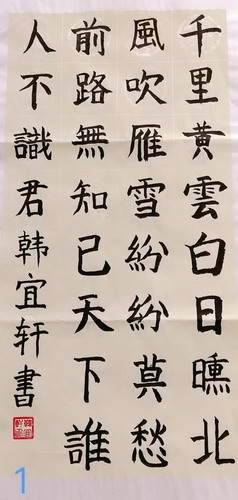 千里黄雲白日曛北
風吹雁雪紛紛莫愁
前路無知已天下誰
人不識君韩宜轩書
1